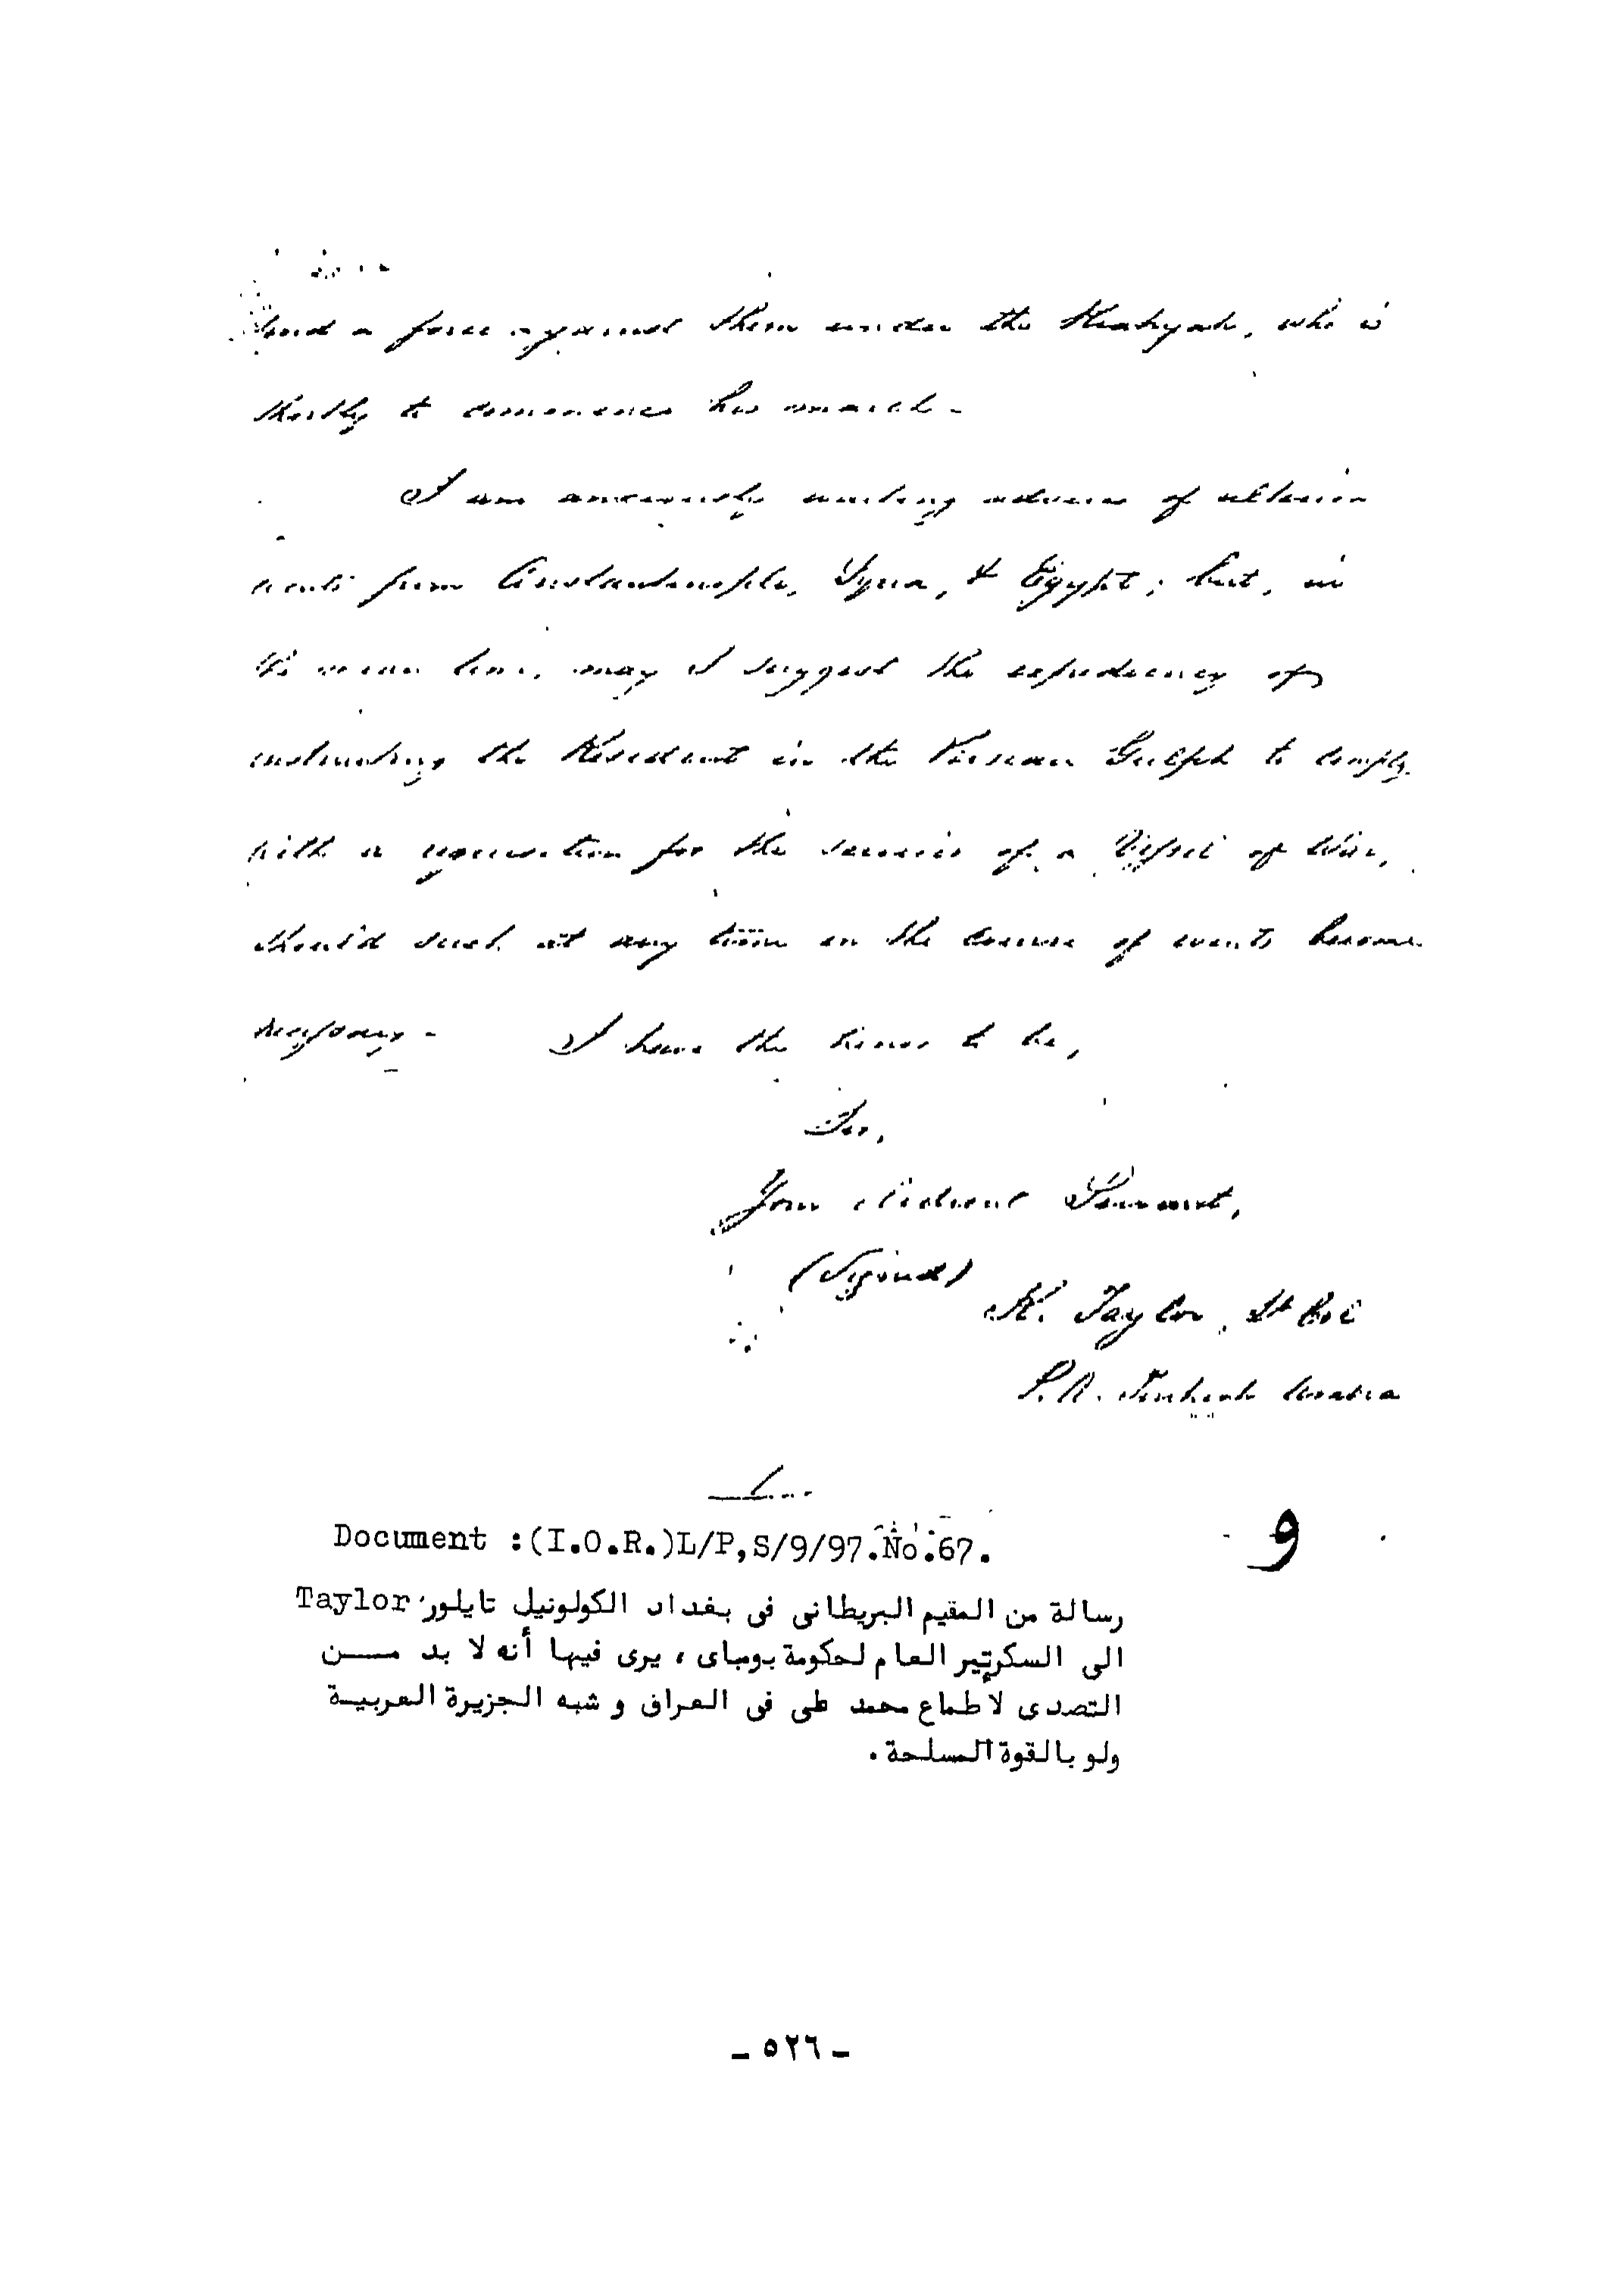 send a force against them under the Keahyah, who is
shortly to commence his march -
I am anxiously waiting advices of ulterior
events from Constantinople, Syria, & Egypt; but, in
the mean time, may I suggest the expediency of
instructing the Resident in the Persian Gulph to comply
with a requisition for the services of a Vessel of War,
should such at any time in the course of events become
necessary - I have the honor to be,
Sir,
Your obedient Servant,
(Signed)
R. Taylor, Lt Col
P.A. Turkish Arabia
Document :(I.O.R.)L/P,S/9/97.No.67.
و
رسالة من المقيم البريطانى فى بغداد الكولونيل تايلور Taylor
الى السكرتير العام لحكومة بومباى ، يرى فيها أنه لا بد مـــن
التصدى لاطماع محمد على فى العراق و شبه الجزيرة العربيـة
ولو بالقوة المسلحة .
- ٥٢٦ -